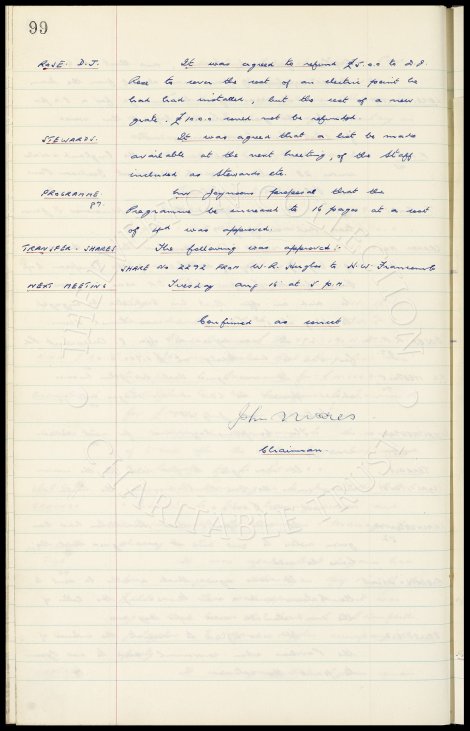 99
ROSE: D.J. It was agreed to refund £5.0.0 to D.J.
Rose to cover the cost of an electric point he
had had installed, but the cost of a new
grate £10.0.0 could not be refunded.
STEWARDS. It was agreed that a list be made
available at the next meeting, of the Staff
included as Stewards etc.
PROGRAMME Mr Jaynsons proposal that the
87. Programme be increased to 16 pages at a cost
of 4d was approved.
TRANSFER - SHARES The following was approved:-
SHARE No 2292 FROM W.R. Hughes to H.W.
NEXT MEETING Tuesday Aug 16 at 5 p.m.
Confirmed as correct
John Moores
Chairman
THE EVERTON COLLECTION
CHARITABLE TRUST